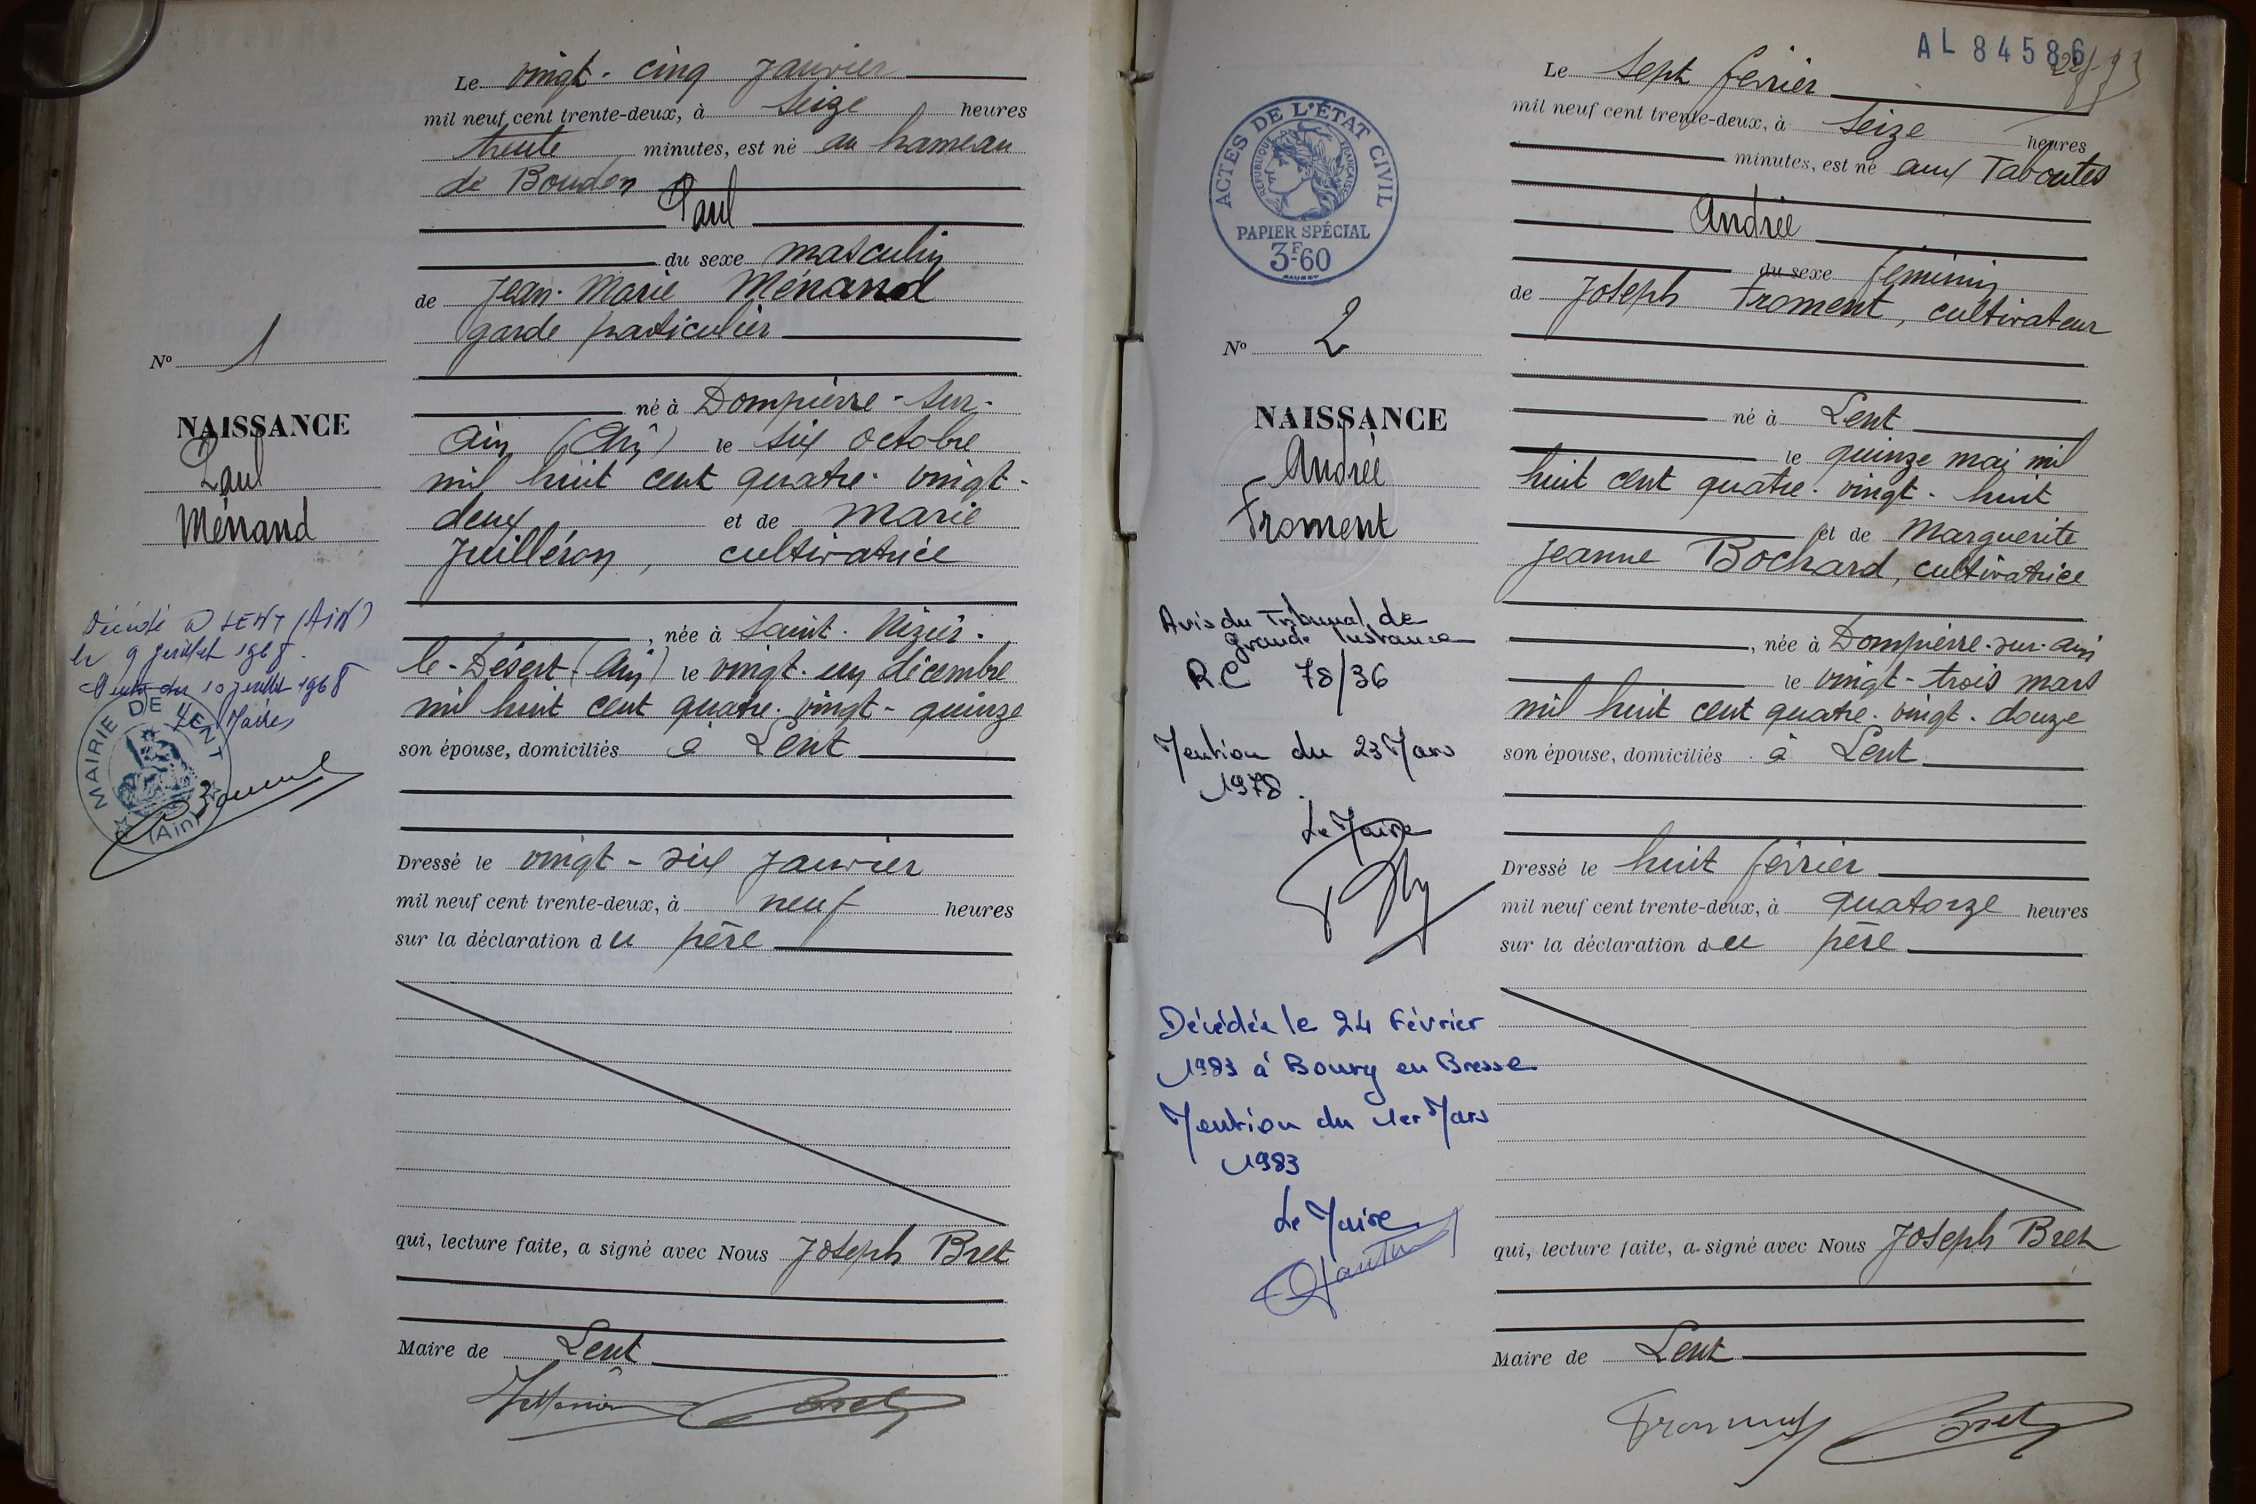 Le vingt-cinq janvier
mil neuf cent trente-deux, à seize heures
trente minutes, est né au hameau
de Bouden
Paul
du sexe masculin
de Jean-Marie Ménand
garde particulier
né à Dompierre-sur-
Ain (Ain) le six octobre
mil huit cent quatre-vingt-
deux et de Marie
Juilléron, cultivatrice
, née à Saint-Nizier-
le-Désert (Ain) le vingt-un décembre
mil huit cent quatre-vingt-quinze
son épouse, domiciliés à Lent
Dressé le vingt-six janvier
mil neuf cent trente-deux, à neuf heures
sur la déclaration du père
qui, lecture faite, a signé avec Nous Joseph Bret
Maire de Lent
Bret
No 1
NAISSANCE
Paul
Ménand
Décédé à LENT (AIN)
le 9 juillet 1968.
du 10 juillet 1968
Le Maire
MAIRIE DE LENT
(Ain)
AL 84586
Le sept février
mil neuf cent trente-deux, à seize heures
minutes, est né aux Taboutes
Andrée
du sexe féminin
de Joseph Froment, cultivateur
né à Lent
le quinze mai mil
huit cent quatre-vingt-huit
et de Marguerite
Jeanne Bochard, cultivatrice
, née à Dompierre-sur-Ain
le vingt-trois mars
mil huit cent quatre-vingt-douze
son épouse, domiciliés à Lent
Dressé le huit février
mil neuf cent trente-deux, à quatorze heures
sur la déclaration du père
qui, lecture faite, a signé avec Nous Joseph Bret
Maire de Lent
Froment Bret
ACTES DE L'ÉTAT CIVIL
RÉPUBLIQUE FRANÇAISE
PAPIER SPÉCIAL
3F60
No 2
NAISSANCE
Andrée
Froment
Avis du Tribunal de
Grande Instance
RC 78/36
Mention du 23 Mars
1978.
Le Maire
Décédée le 24 Février
1983 à Bourg en Bresse
Mention du 1er Mars
1983
Le Maire